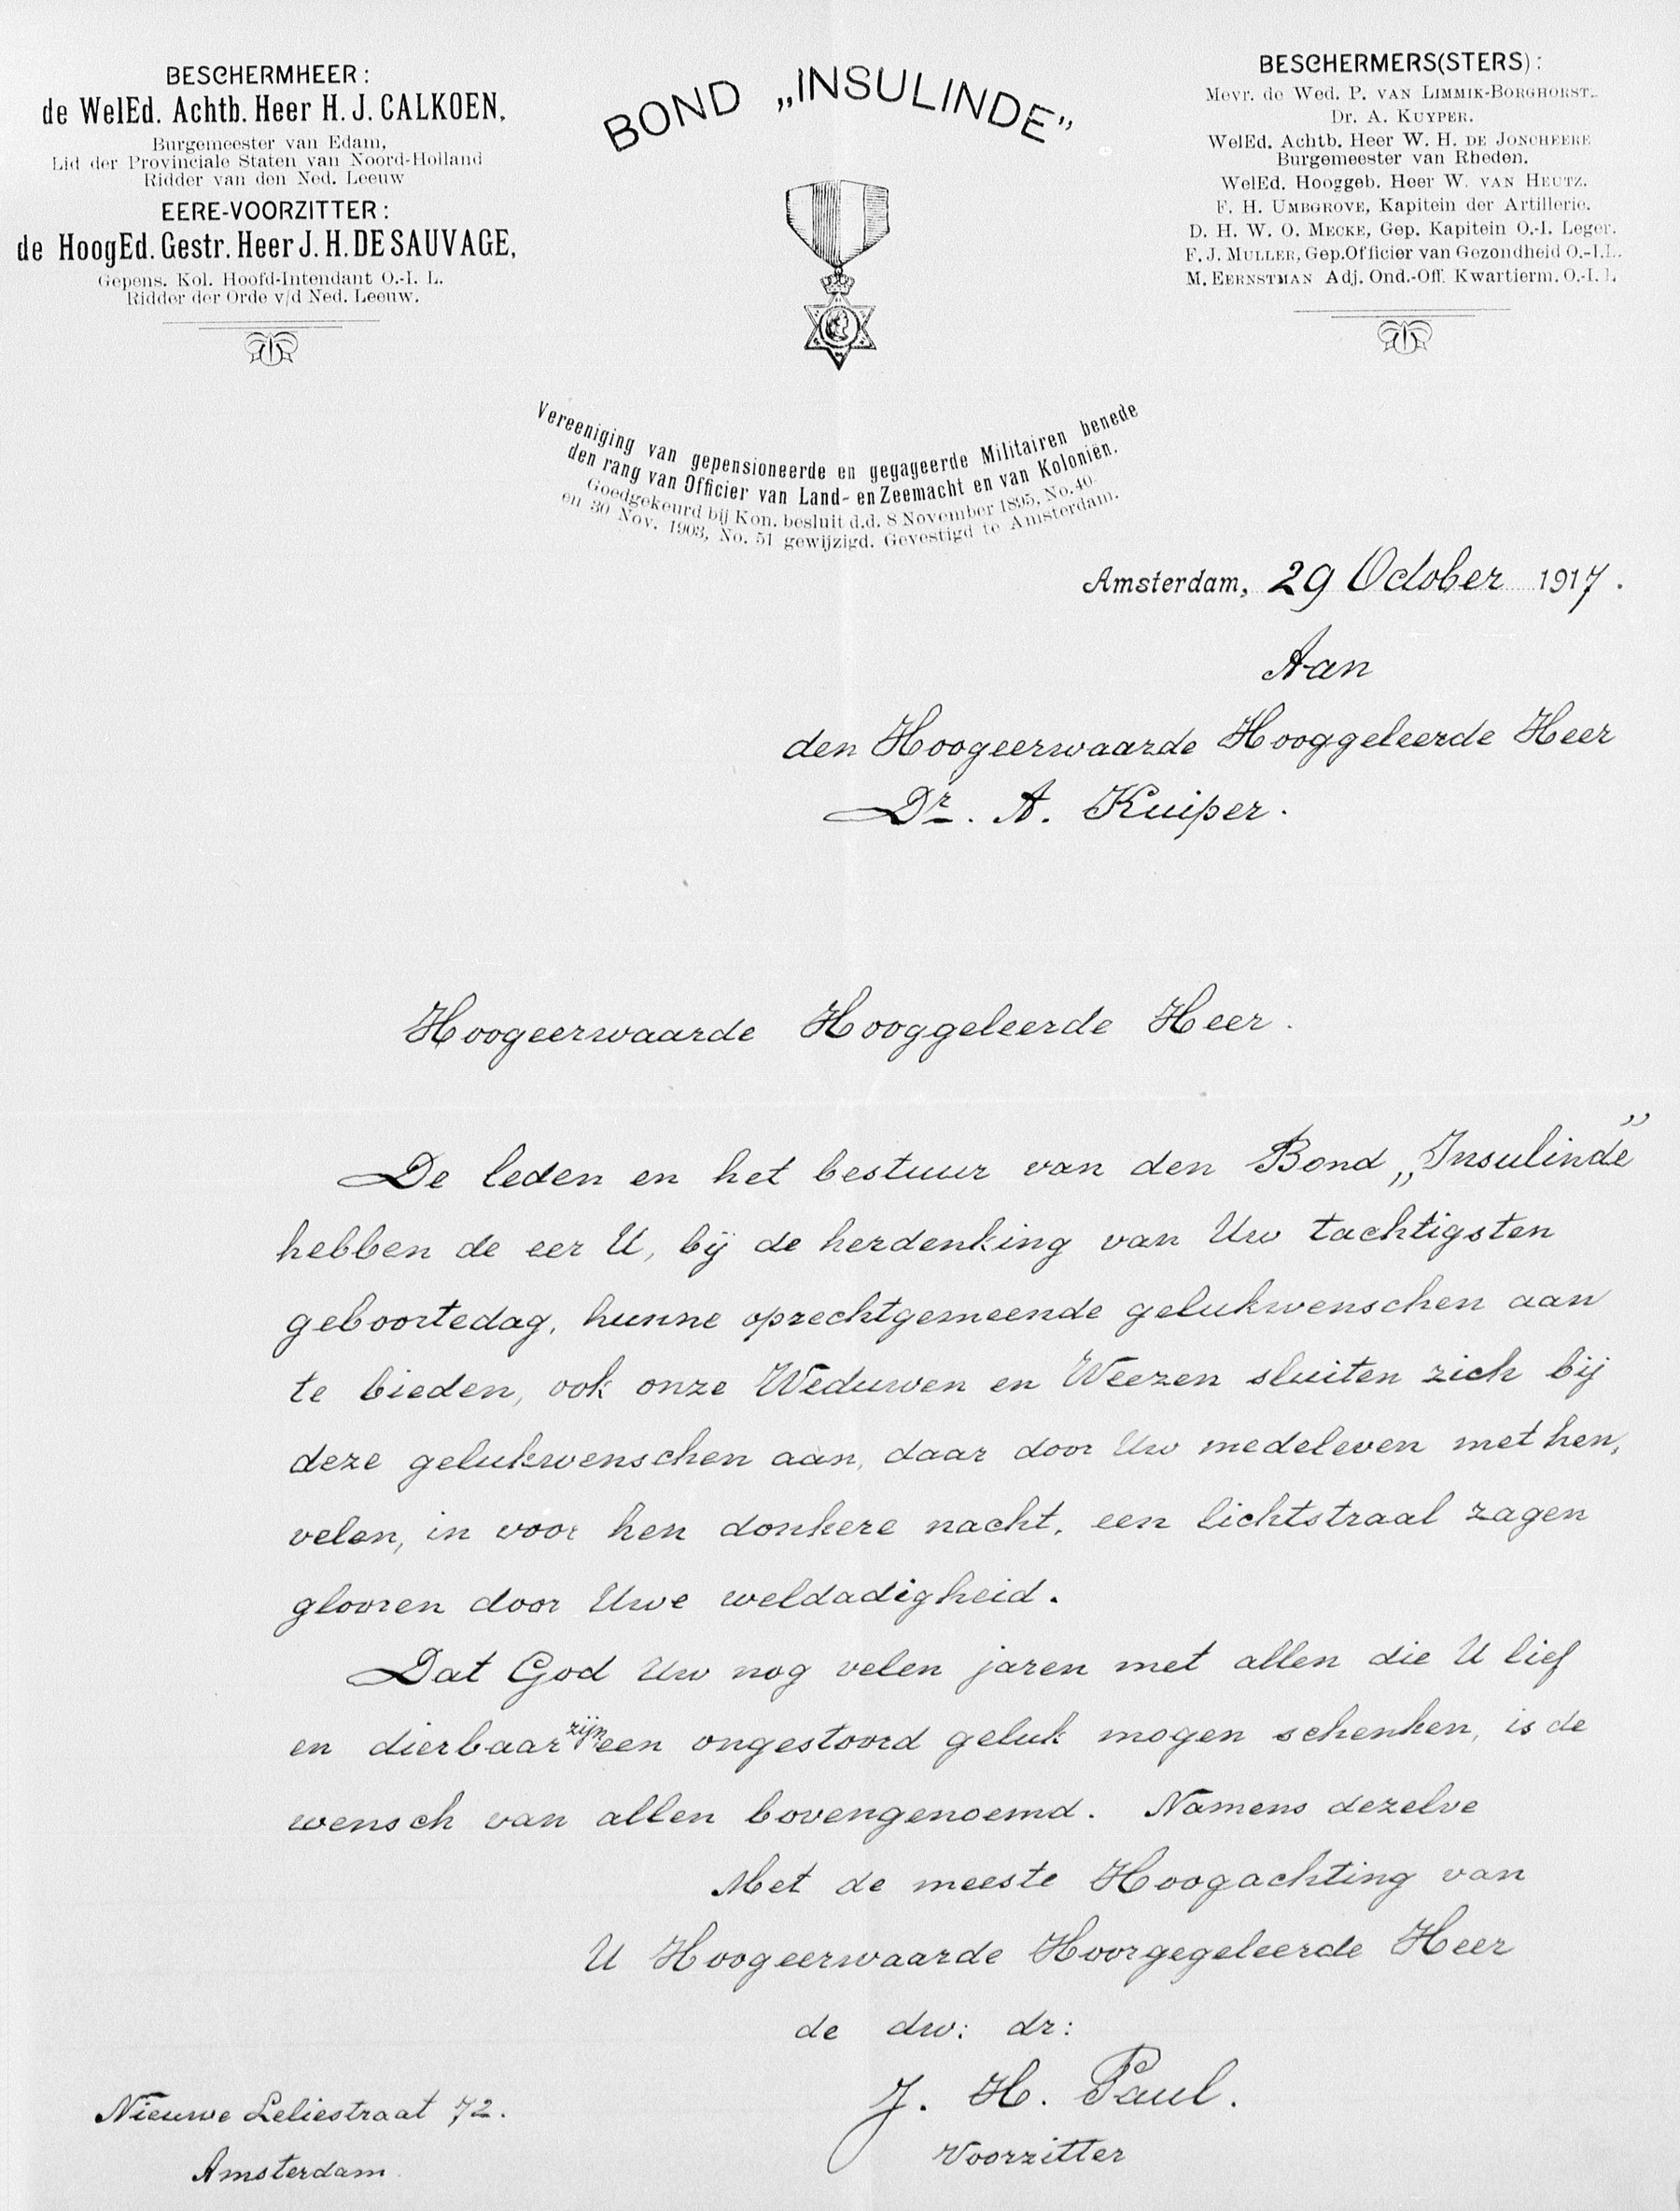 BESCHERMHEER:
de WelEd. Achtb. Heer H. J. CALKOEN,
Burgemeester van Edam,
Lid der Provinciale Staten van Noord-Holland
Ridder van den Ned. Leeuw
EERE-VOORZITTER:
de HoogEd. Gestr. Heer J. H. DE SAUVAGE,
Gepens. Kol. Hoofd-Intendant O.-I. L.
Ridder der Orde v/d Ned. Leeuw.
BOND „INSULINDE”
BESCHERMERS(STERS):
Mevr. de Wed. P. VAN LIMMIK-BORGHORST.
Dr. A. KUYPER.
WelEd. Achtb. Heer W. H. DE JONCHEERE
Burgemeester van Rheden.
WelEd. Hooggeb. Heer W. VAN HEUTZ.
F. H. UMBGROVE, Kapitein der Artillerie.
D. H. W. O. MECKE, Gep. Kapitein O.-I. Leger.
F. J. MULLER, Gep. Officier van Gezondheid O.-I.L.
M. EERNSTMAN Adj. Ond.-Off. Kwartierm. O.-I. L
Vereeniging van gepensioneerde en gegageerde Militairen benede
den rang van Officier van Land- en Zeemacht en van Koloniën.
Goedgekeurd bij Kon. besluit d.d. 8 November 1895, No. 40
en 30 Nov. 1903, No. 51 gewijzigd. Gevestigd te Amsterdam.
Amsterdam, 29 October 1917.
Aan
den Hoogeerwaarde Hooggeleerde Heer
Dr. A. Kuiper.
Hoogeerwaarde Hooggeleerde Heer.
De leden en het bestuur van den Bond „Insulinde”
hebben de eer U, bij de herdenking van Uw tachtigsten
geboortedag, hunne oprechtgemeende gelukwenschen aan
te bieden, ook onze Weduwen en Weezen sluiten zich bij
deze gelukwenschen aan, daar door Uw medeleven met hen,
velen, in voor hen donkere nacht, een lichtstraal zagen
glooren door Uwe weldadigheid.
Dat God Uw nog velen jaren met allen die U lief
en dierbaar zijn een ongestoord geluk mogen schenken, is de
wensch van allen bovengenoemd. Namens dezelve
Met de meeste Hoogachting van
U Hoogeerwaarde Hoorgegeleerde Heer
de dw: dr:
J. H. Paul.
Voorzitter
Nieuwe Leliestraat 72.
Amsterdam.